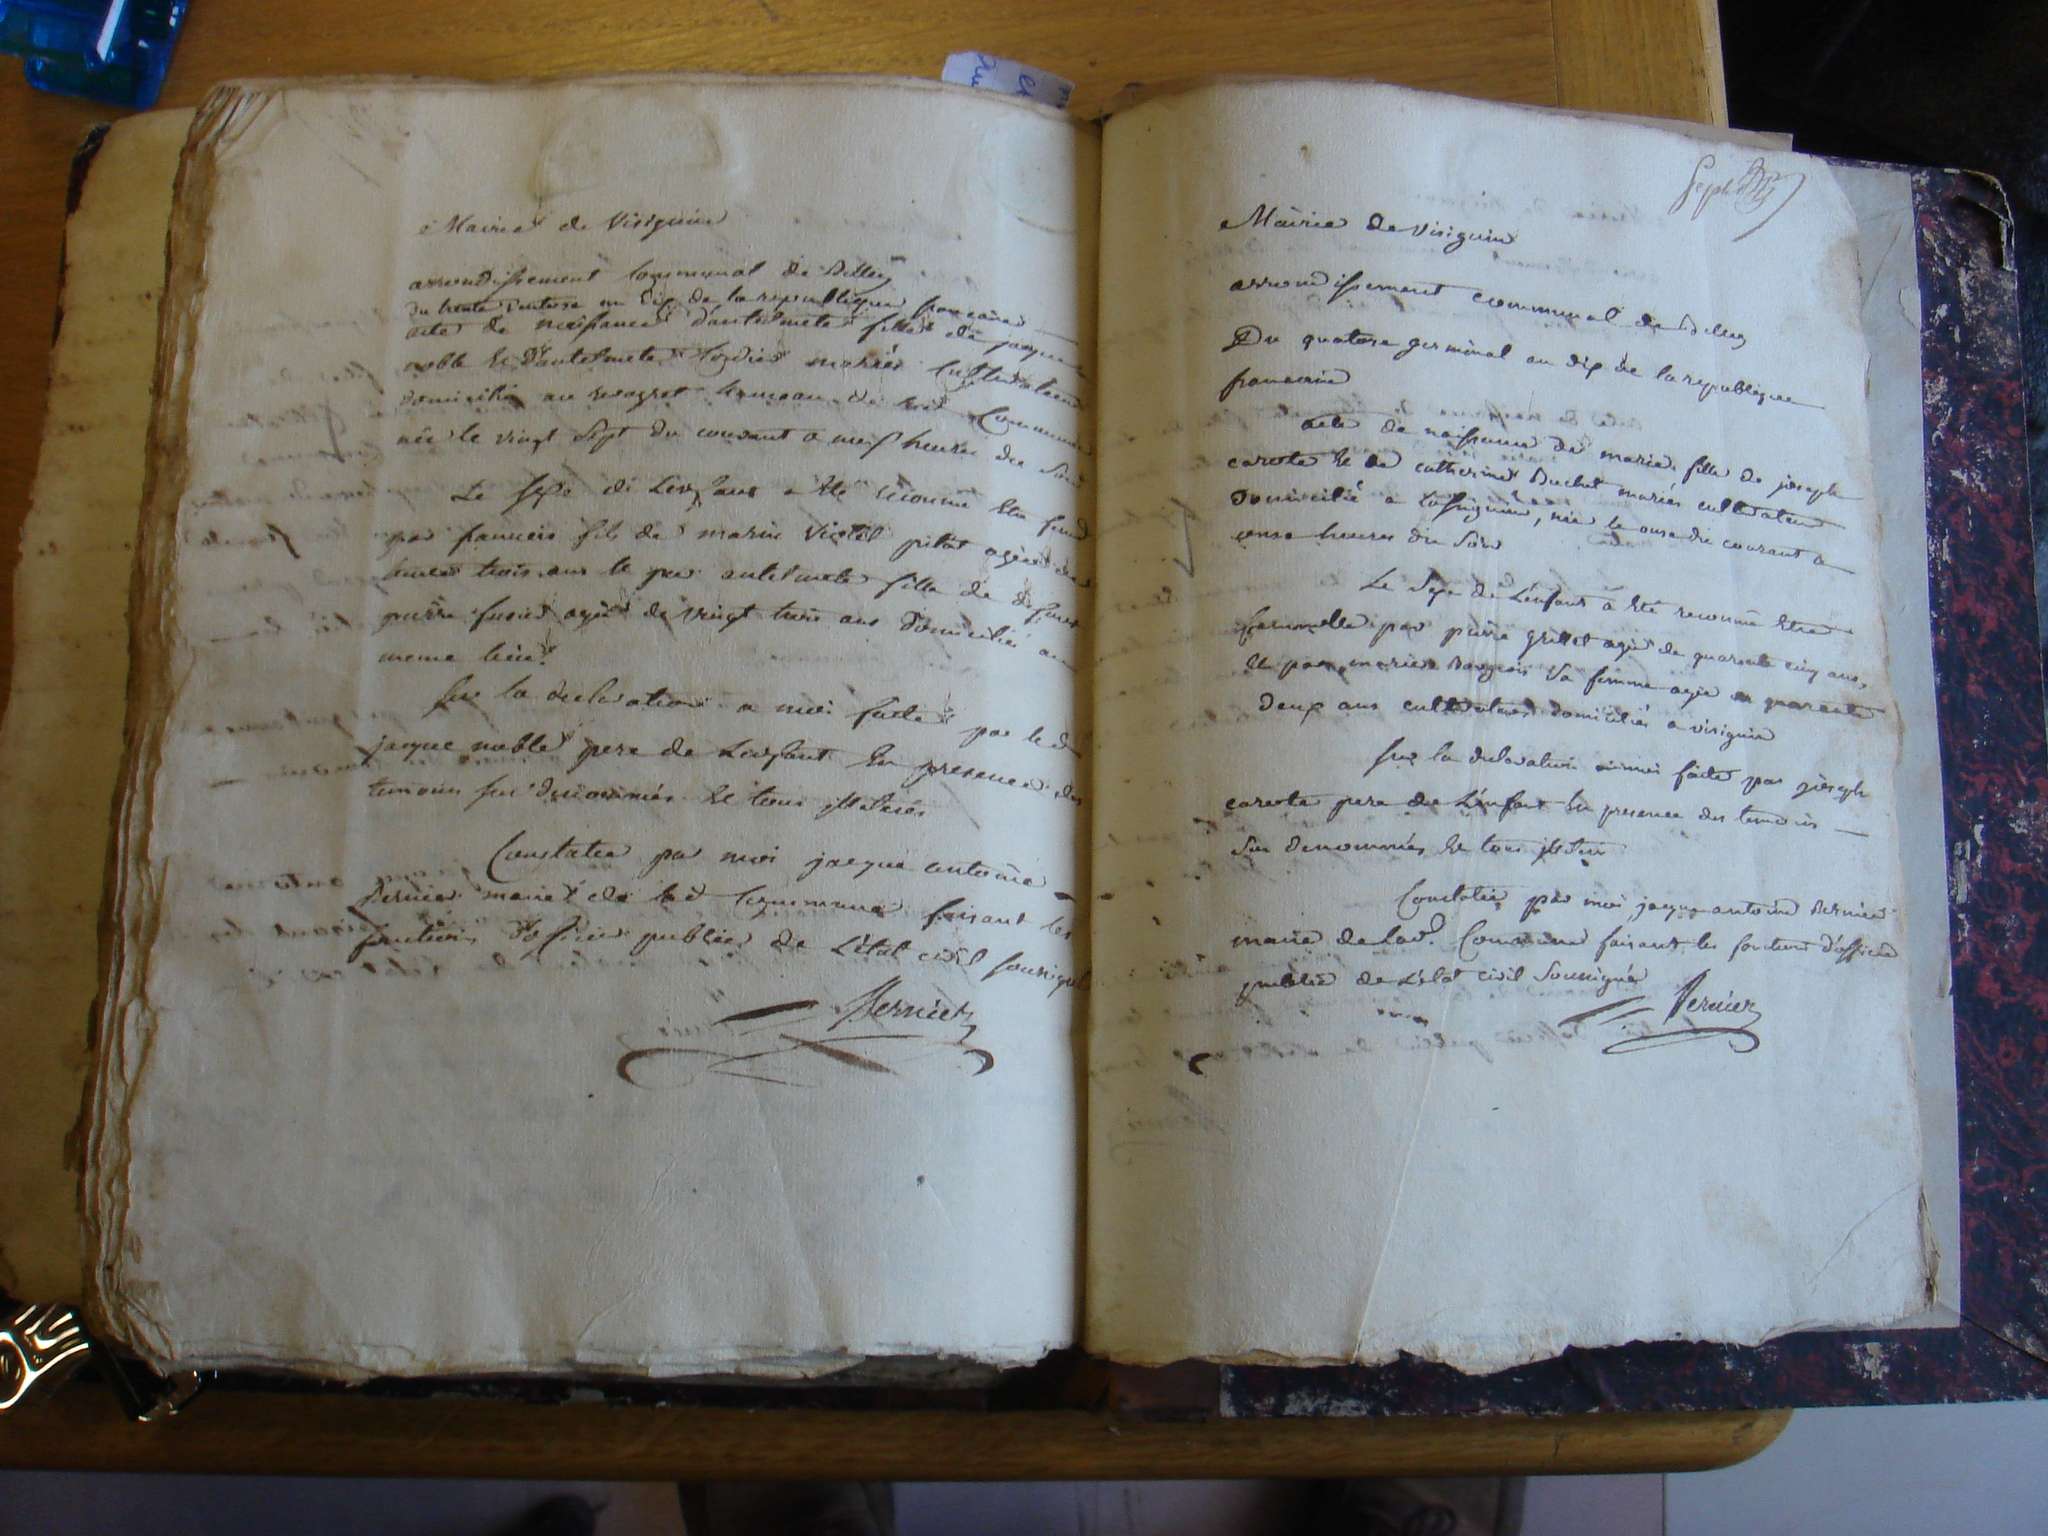 Mairie de Virignin
arrondissement Communal de Belley
du trente ventose an dix de la republique francaise
acte de naissance d'antelmete fille de jacque
noble et d'antelmete mariés cultivateurs
domicilié au hameau de lad Commune
née le vingt sept du courant a neuf heures du soir
Le sexe de L'enfant a été reconnu etre
par francois fils de marin pilat agée de
trois ans et par antelmete fille de defunt
pierre agée de vingt trois ans domiciliés au
meme lieu
sur la declaration a moi faite par led
jacque noble pere de L'enfant En presence des
temoins sus denommés et tous illeterés
Constatée par moi jacque antoine
Bernier maire de lad Commune faisant les
fonctions d'officier public de L'état civil soussigné
Bernier
Sept
Mairie de Virignin
arrondissement communal de Belley
Du quatorze germinal an dix de la republique
francaise
acte de naissance de marie fille de joseph
carotte et de catherine Buchet mariés cultivateurs
Domicilié a, née le onze du courant a
onze heures du soir
Le Sexe de L'enfant a été reconnu etre
femmelle par pierre grillet agé de quarante cinq ans,
et par marie Bourgeois sa femme agée de quarante
deux ans cultivateurs domiciliés a virignin
sur la declaration a moi faite par joseph
carotte pere de L'enfant En presence des temoins
sus denommés et tous illeterés
Constatée par moi jacque antoine Bernier
maire de lad. Commune faisant les fonctions d'officier
public de L'état civil soussigné
Bernier